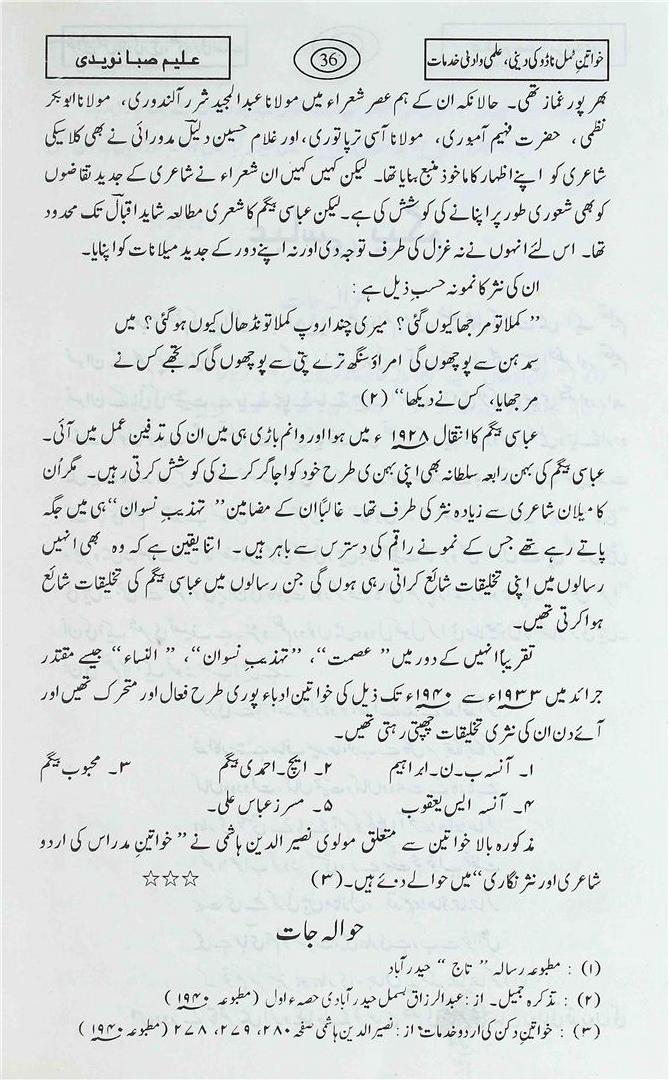 خواتینِ ٹمل ناڈو کی دینی، علمی و ادبی خدمات
36
علیم صبا نویدی
بھر پور غماز تھی۔ حالانکہ ان کے ہم عصر شعراء میں مولانا عبدالمجید شرر آلندوری، مولانا ابوبکر
نظمی، حضرت فہیم آمبوری، مولانا آسی ترپاتوری، اور غلام حسین دلیلؔ مدورائی نے بھی کلاسیکی
شاعری کو اپنے اظہار کا ماخذ و منبع بنایا تھا۔ لیکن کہیں کہیں ان شعراء نے شاعری کے جدید تقاضوں
کو بھی شعوری طور پر اپنانے کی کوشش کی ہے۔ لیکن عباسی بیگم کا شعری مطالعہ شاید اقبالؔ تک محدود
تھا۔ اس لئے انہوں نے نہ غزل کی طرف توجہ دی اور نہ اپنے دور کے جدید میلانات کو اپنایا۔
ان کی نثر کا نمونہ حسبِ ذیل ہے :
” کملا تو مرجھا کیوں گئی؟ میری چندا روپ کملا تو نڈھال کیوں ہوگئی؟ میں
سمدہن سے پوچھوں گی امراؤ سنگھ ترے پتی سے پوچھوں گی کہ تجھے کس نے
مرجھایا، کس نے دیکھا“ (۲)
عباسی بیگم کا انتقال ۱۹۲۸ء میں ہوا اور وانم باڑی ہی میں ان کی تدفین عمل میں آئی۔
عباسی بیگم کی بہن رابعہ سلطانہ بھی اپنی بہن کی طرح خود کو اجاگر کرنے کی کوشش کرتی رہیں۔ مگر اُن
کا میلان شاعری سے زیادہ نثر کی طرف تھا۔ غالباً ان کے مضامین ”تہذیبِ نسوان“ ہی میں جگہ
پاتے رہے تھے جس کے نمونے راقم کی دسترس سے باہر ہیں۔ اتنا یقین ہے کہ وہ بھی انہیں
رسالوں میں اپنی تخلیقات شائع کراتی رہی ہوں گی جن رسالوں میں عباسی بیگم کی تخلیقات شائع
ہوا کرتی تھیں۔
تقریباً انہیں کے دور میں ”عصمت“، ”تہذیبِ نسوان“، ”النساء“ جیسے مقتدر
جرائد میں ۱۹۳۳ء سے ۱۹۴۰ء تک ذیل کی خواتین ادباء پوری طرح فعال اور متحرک تھیں اور
آئے دن ان کی نثری تخلیقات چھپتی رہتی تھیں۔
۱۔ آنسہ ب۔ن۔ابراہیم ۲۔ ایچ۔احمدی بیگم ۳۔ محبوب بیگم
۴۔ آنسہ ایس یعقوب ۵۔ مسز عباس علی۔
مذکورہ بالا خواتین سے متعلق مولوی نصیر الدین ہاشمی نے ”خواتینِ مدراس کی اردو
شاعری اور نثر نگاری“ میں حوالے دئے ہیں۔ (۳) ☆☆☆
حوالہ جات
(۱) : مطبوعہ رسالہ ”تاج“ حیدرآباد
(۲) : تذکرہ جمیل۔ از : عبدالرزاق بسمل حیدرآبادی حصہء اول (مطبوعہ ۱۹۴۰)
(۳) : خواتینِ دکن کی اردو خدمات از : نصیر الدین ہاشمی صفحہ ۲۸۰، ۲۷۹، ۲۷۸ (مطبوعہ ۱۹۴۰)